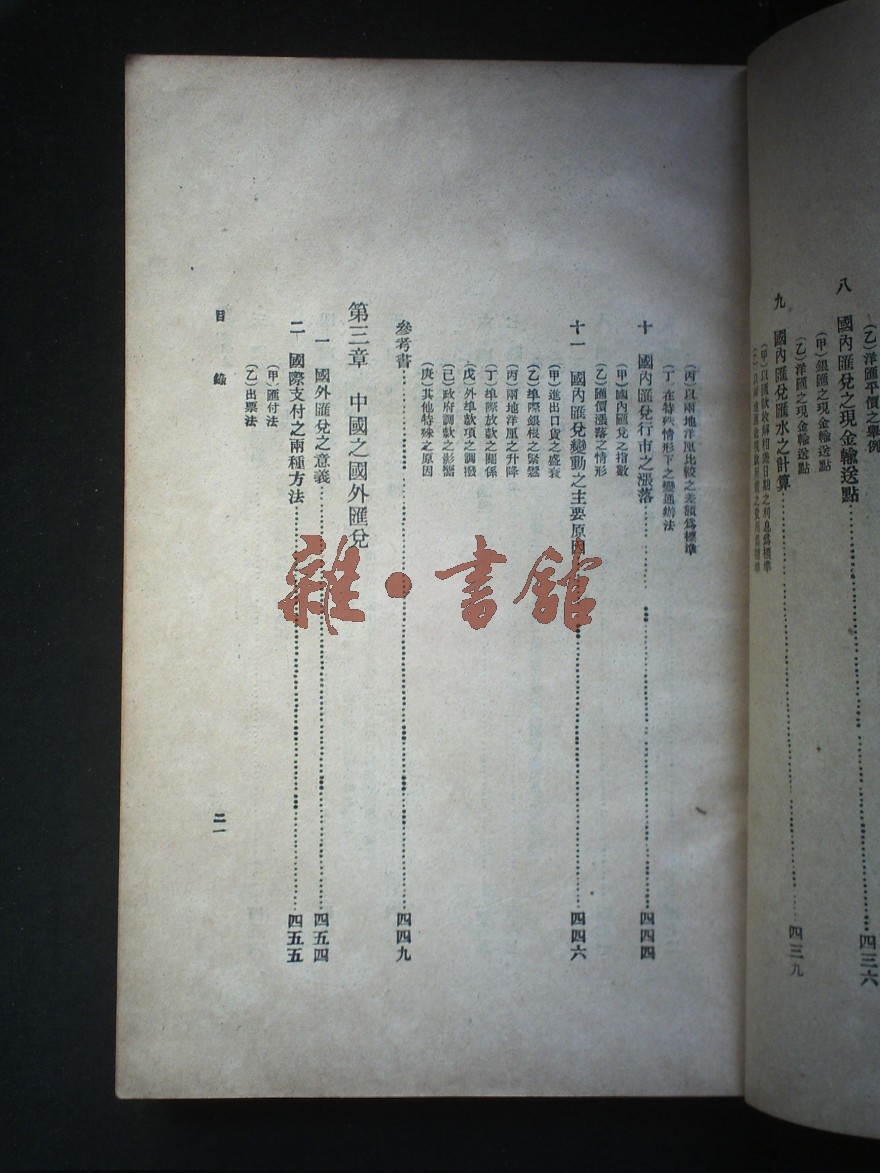 (乙)洋匯平價之舉例
八 國內匯兌之現金輸送點……四三六
(甲)銀匯之現金輸送點
(乙)洋匯之現金輸送點
九 國內匯兌匯水之計算……四三九
(丙)以兩地洋厘比較之差額為標準
(丁)在特殊情形下之變通辦法
十 國內匯兌行市之漲落……四四四
(甲)國內匯兌之指數
(乙)匯價漲落之情形
十一 國內匯兌變動之主要原因……四四六
(甲)進出口貨之盛衰
(乙)埠際銀根之緊鬆
(丙)兩地洋厘之升降
(丁)埠際放款之關係
(戊)外埠款項之調撥
(己)政府調款之影響
(庚)其他特殊之原因
參考書……四四九
第三章 中國之國外匯兌
一 國外匯兌之意義……四五四
二 國際支付之兩種方法……四五五
(甲)匯付法
(乙)出票法
目錄
二一
雜·書館